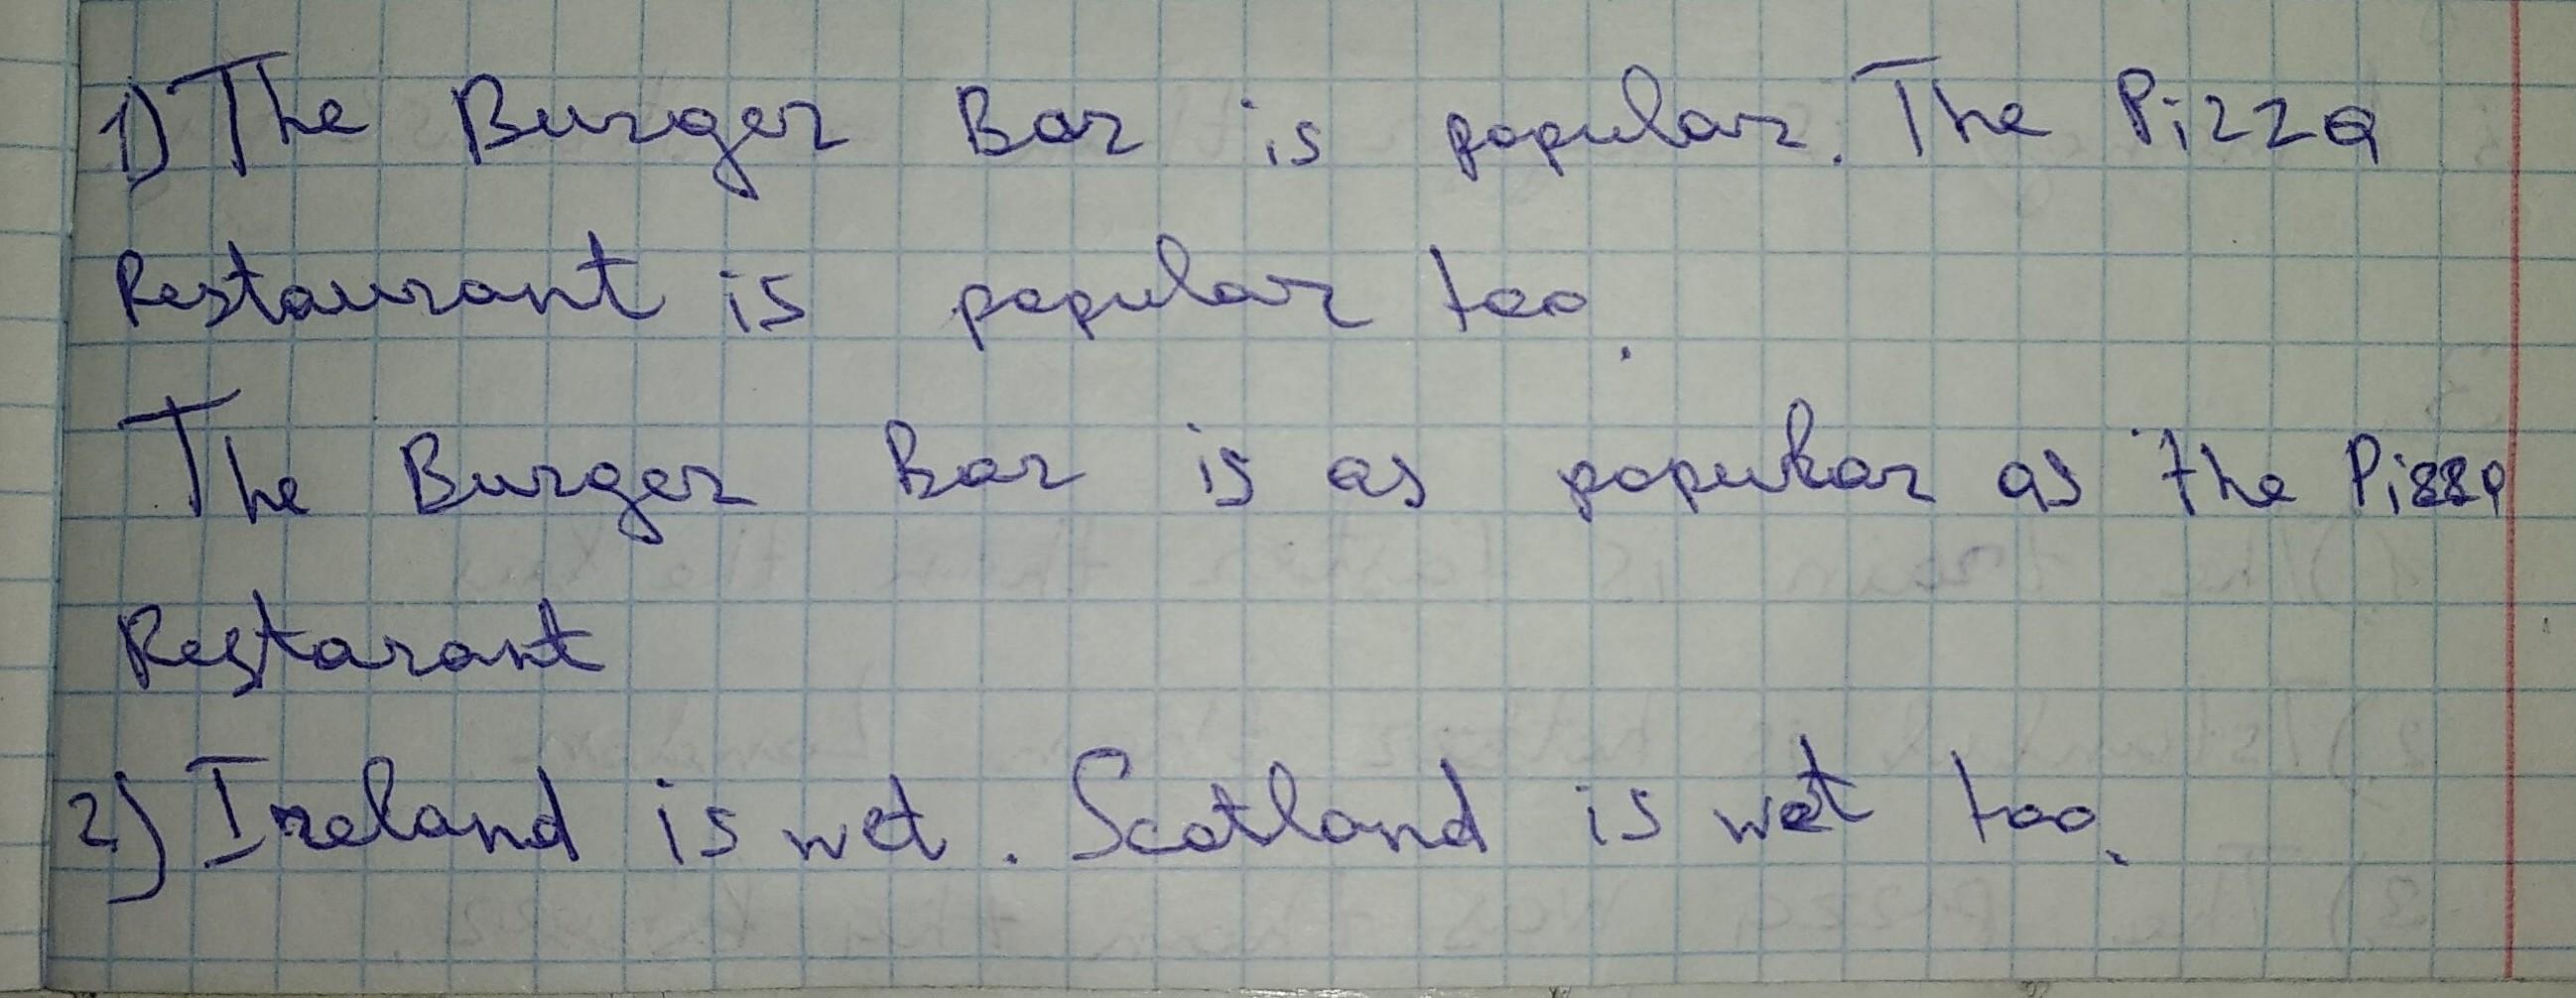 1) The Burger Bar is popular. The Pizza
Restaurant is popular too.
The Burger Bar is as popular as the Pizza
Restarant
2) Ireland is wet. Scotland is wet too.